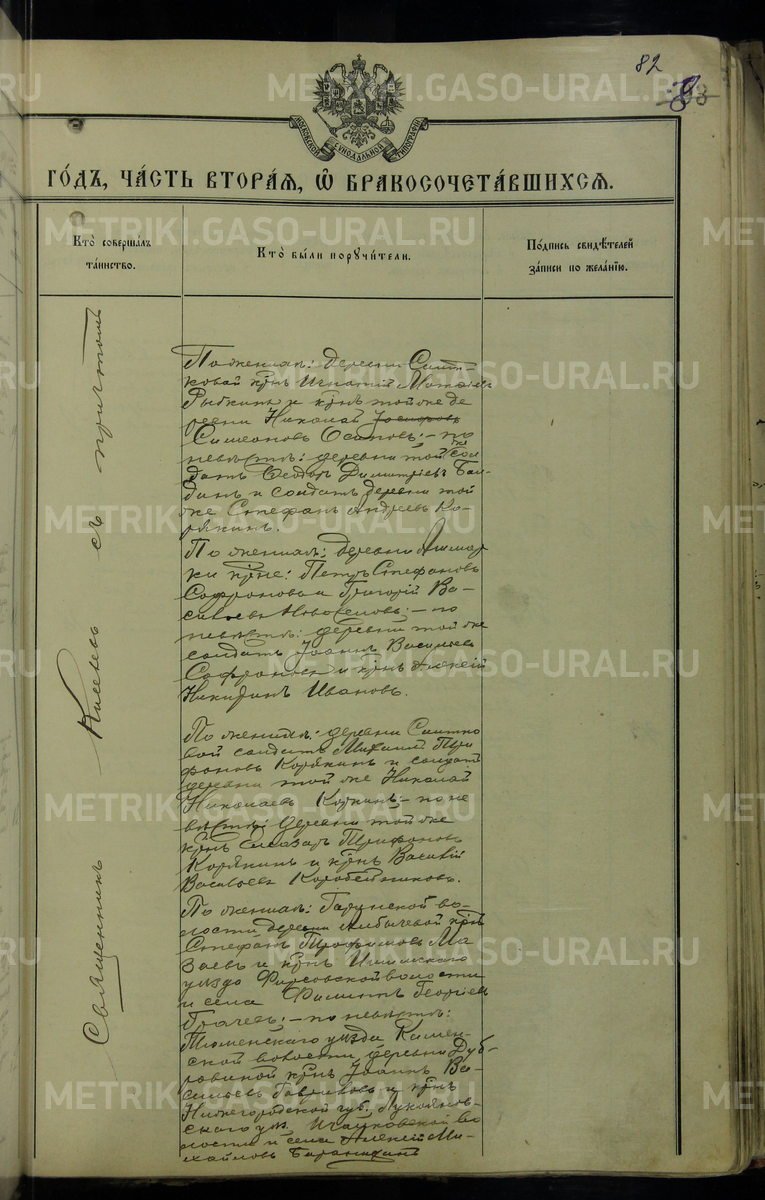 82
83
МОСКОВСКОЙ СѴНОДАЛЬНОЙ ТИПОГРАФІИ
METRIKI.GASO-URAL.RU
го́дъ, ча́сть втора́ѧ, ѽ бракосочета́вшихсѧ.
Кто̀ соверша́лъ та́инство.
Кто̀ бы́ли поручи́тели.
По́дпись свидѣ́телей за́писи по жела́нїю.
Священникъ съ причтомъ
По женихѣ: деревни
ковой крнъ Игнатій
и крнъ той же де
ревни Николай
Симеоновъ Осиповъ; – по
невѣстѣ: деревни той же сол
датъ Ѳеодоръ Димитріевъ
и солдатъ деревни той
же Стефанъ Андреевъ Ко-
рякинъ.
По женихѣ: деревни
ки крне: Петръ Стефановъ
Софроновъ и Григорій Ва-
сильевъ Новоселовъ: – по
невѣстѣ: деревни той же
солдатъ Іоаннъ Васильевъ
Софроновъ и крнъ Алексій
Никитинъ Ивановъ.
По женихѣ: деревни
вой солдатъ Михаилъ Три
фоновъ Корякинъ и солдатъ
деревни той же Николай
Николаевъ – по не
вѣстѣ: деревни той же
крнъ Трифоновъ
Корякинъ и крнъ Василій
Васильевъ Коробейниковъ.
По женихѣ: во-
лости деревни крнъ
Стефанъ Трофимовъ Ма
заевъ и крнъ Ишимскаго
уѣзда Фирсовской волости
и села Филиппъ Георгіевъ
Грачевъ; – по невѣстѣ:
Тюменскаго уѣзда Камен-
ской волости деревни Дуб-
ровиной крнъ Іоаннъ Ва-
сильевъ Гавриловъ и крнъ
Нижегородской губ. Лукоянов-
скаго уѣз. во
лости и села Алексій Ми-
хайловъ